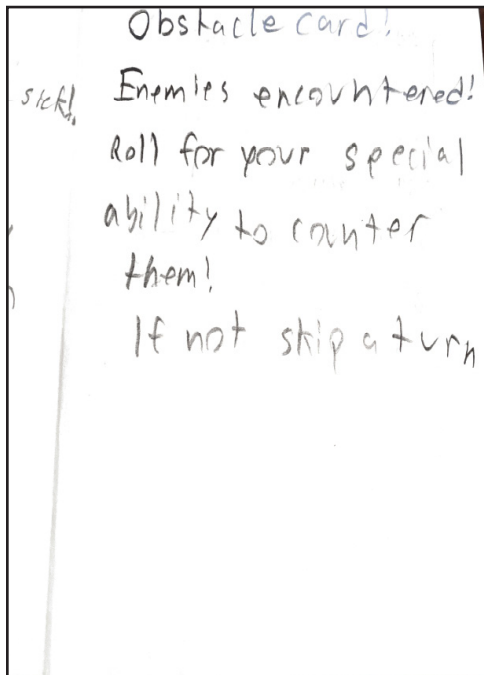 Obstacle card!
sick!
Enemies encountered!
Roll for your special
ability to counter
them!
If not skip a turn